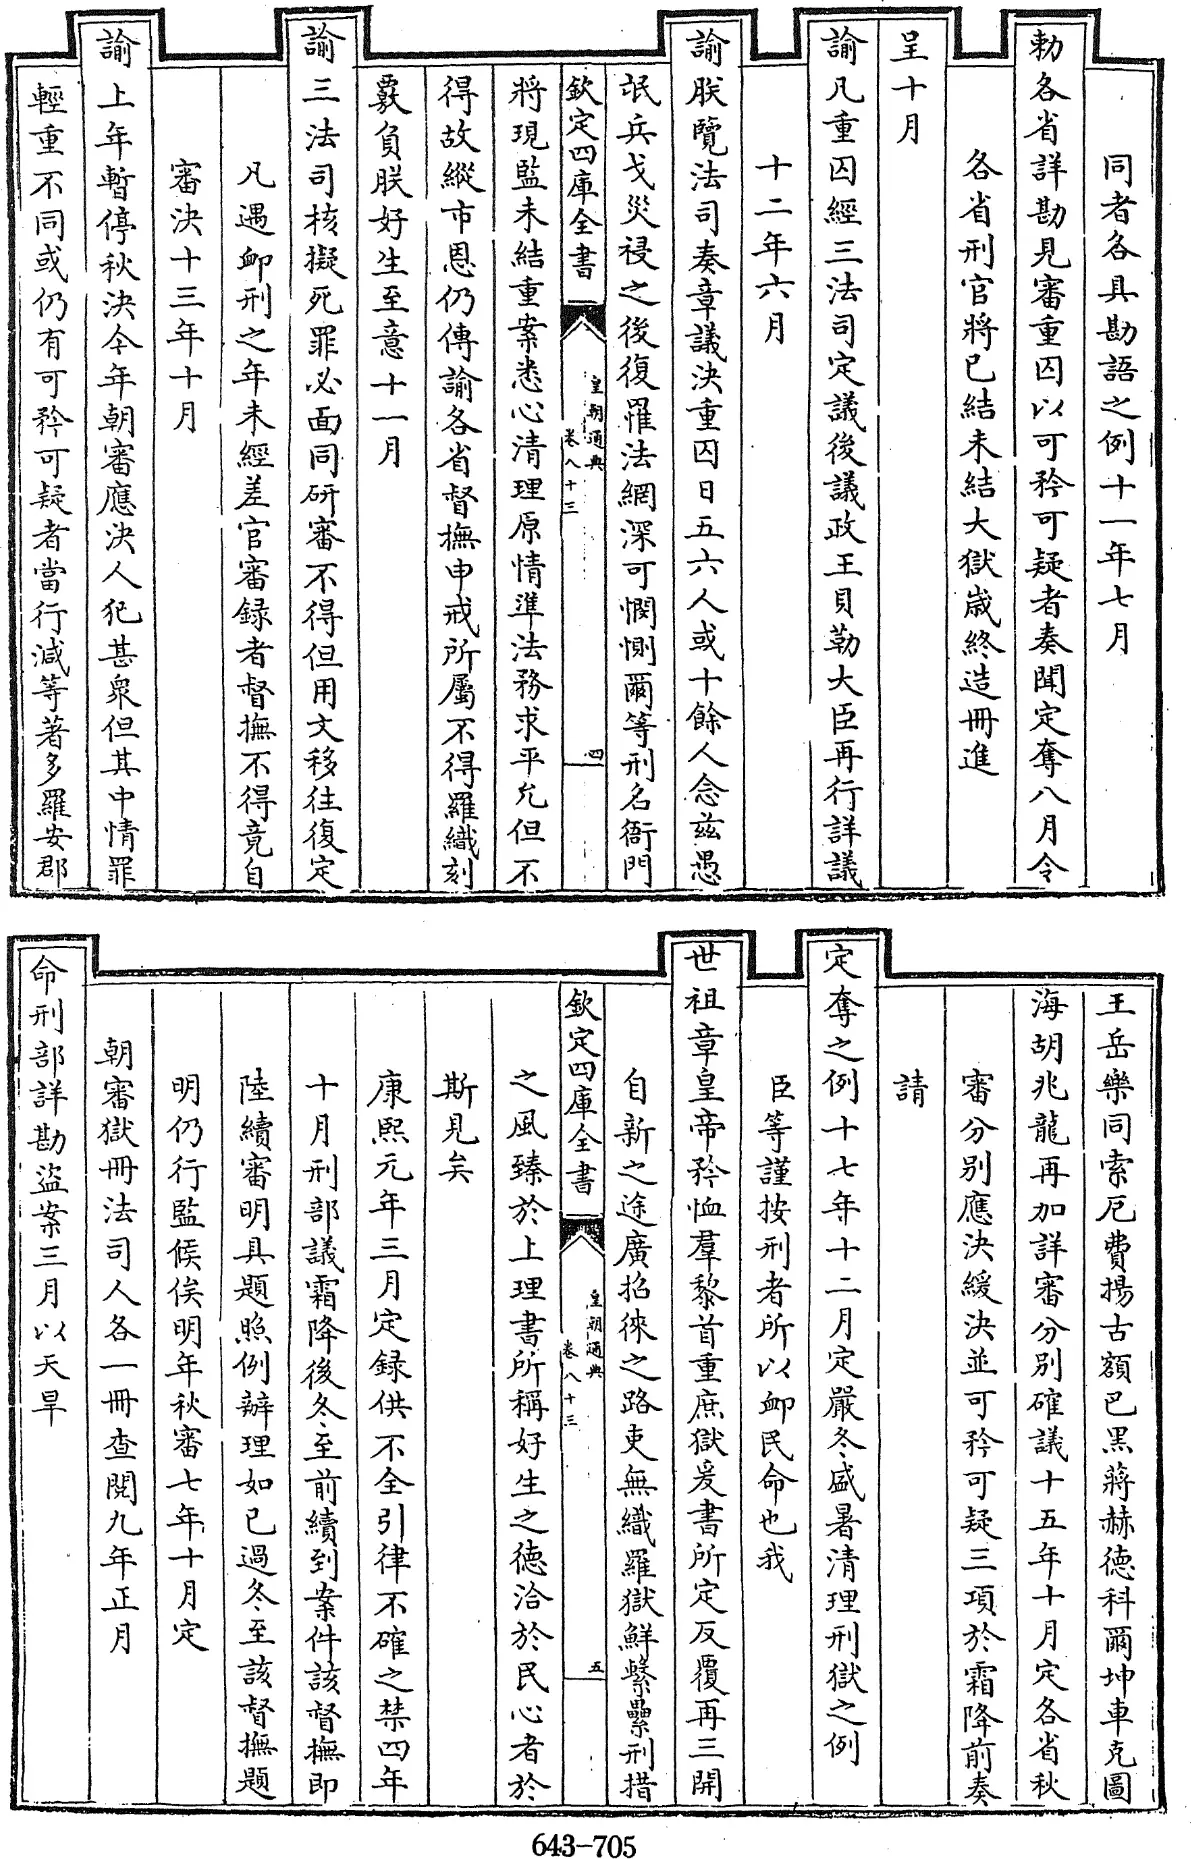 同者各具勘語之例十一年七月
勅各省詳勘見審重囚以可矜可疑者奏聞定奪八月令
各省刑官將已結未結大獄歳終造冊進
呈十月
諭凡重囚經三法司定議後議政王貝勒大臣再行詳議
十二年六月
諭朕覽法司奏章議決重囚日五六人或十餘人念兹愚
氓兵戈災祲之後復罹法網深可憫惻爾等刑名衙門
欽定四庫全書
皇朝通典
卷八十三
四
將現監未結重案悉心清理原情準法務求平允但不
得故縱市恩仍傳諭各省督撫申戒所屬不得羅織刻
覈負朕好生至意十一月
諭三法司核擬死罪必面同研審不得但用文移往復定
凡遇卹刑之年未經差官審録者督撫不得竟自
審決十三年十月
諭上年暫停秋決今年朝審應決人犯甚衆但其中情罪
輕重不同或仍有可矜可疑者當行減等著多羅安郡
王岳樂同索尼費揚古額巴黑蔣赫德科爾坤車克圖
海胡兆龍再加詳審分別確議十五年十月定各省秋
審分別應決緩決並可矜可疑三項於霜降前奏
請
定奪之例十七年十二月定嚴冬盛暑清理刑獄之例
臣等謹按刑者所以卹民命也我
世祖章皇帝矜恤羣黎首重庶獄爰書所定反覆再三開
自新之途廣招徠之路吏無織羅獄鮮繫纍刑措
欽定四庫全書
皇朝通典
卷八十三
五
之風臻於上理書所稱好生之德洽於民心者於
斯見矣
康熙元年三月定録供不全引律不確之禁四年
十月刑部議霜降後冬至前續到案件該督撫即
陸續審明具題照例辦理如已過冬至該督撫題
明仍行監候俟明年秋審七年十月定
朝審獄冊法司人各一冊查閲九年正月
命刑部詳勘盜案三月以天旱
643-705